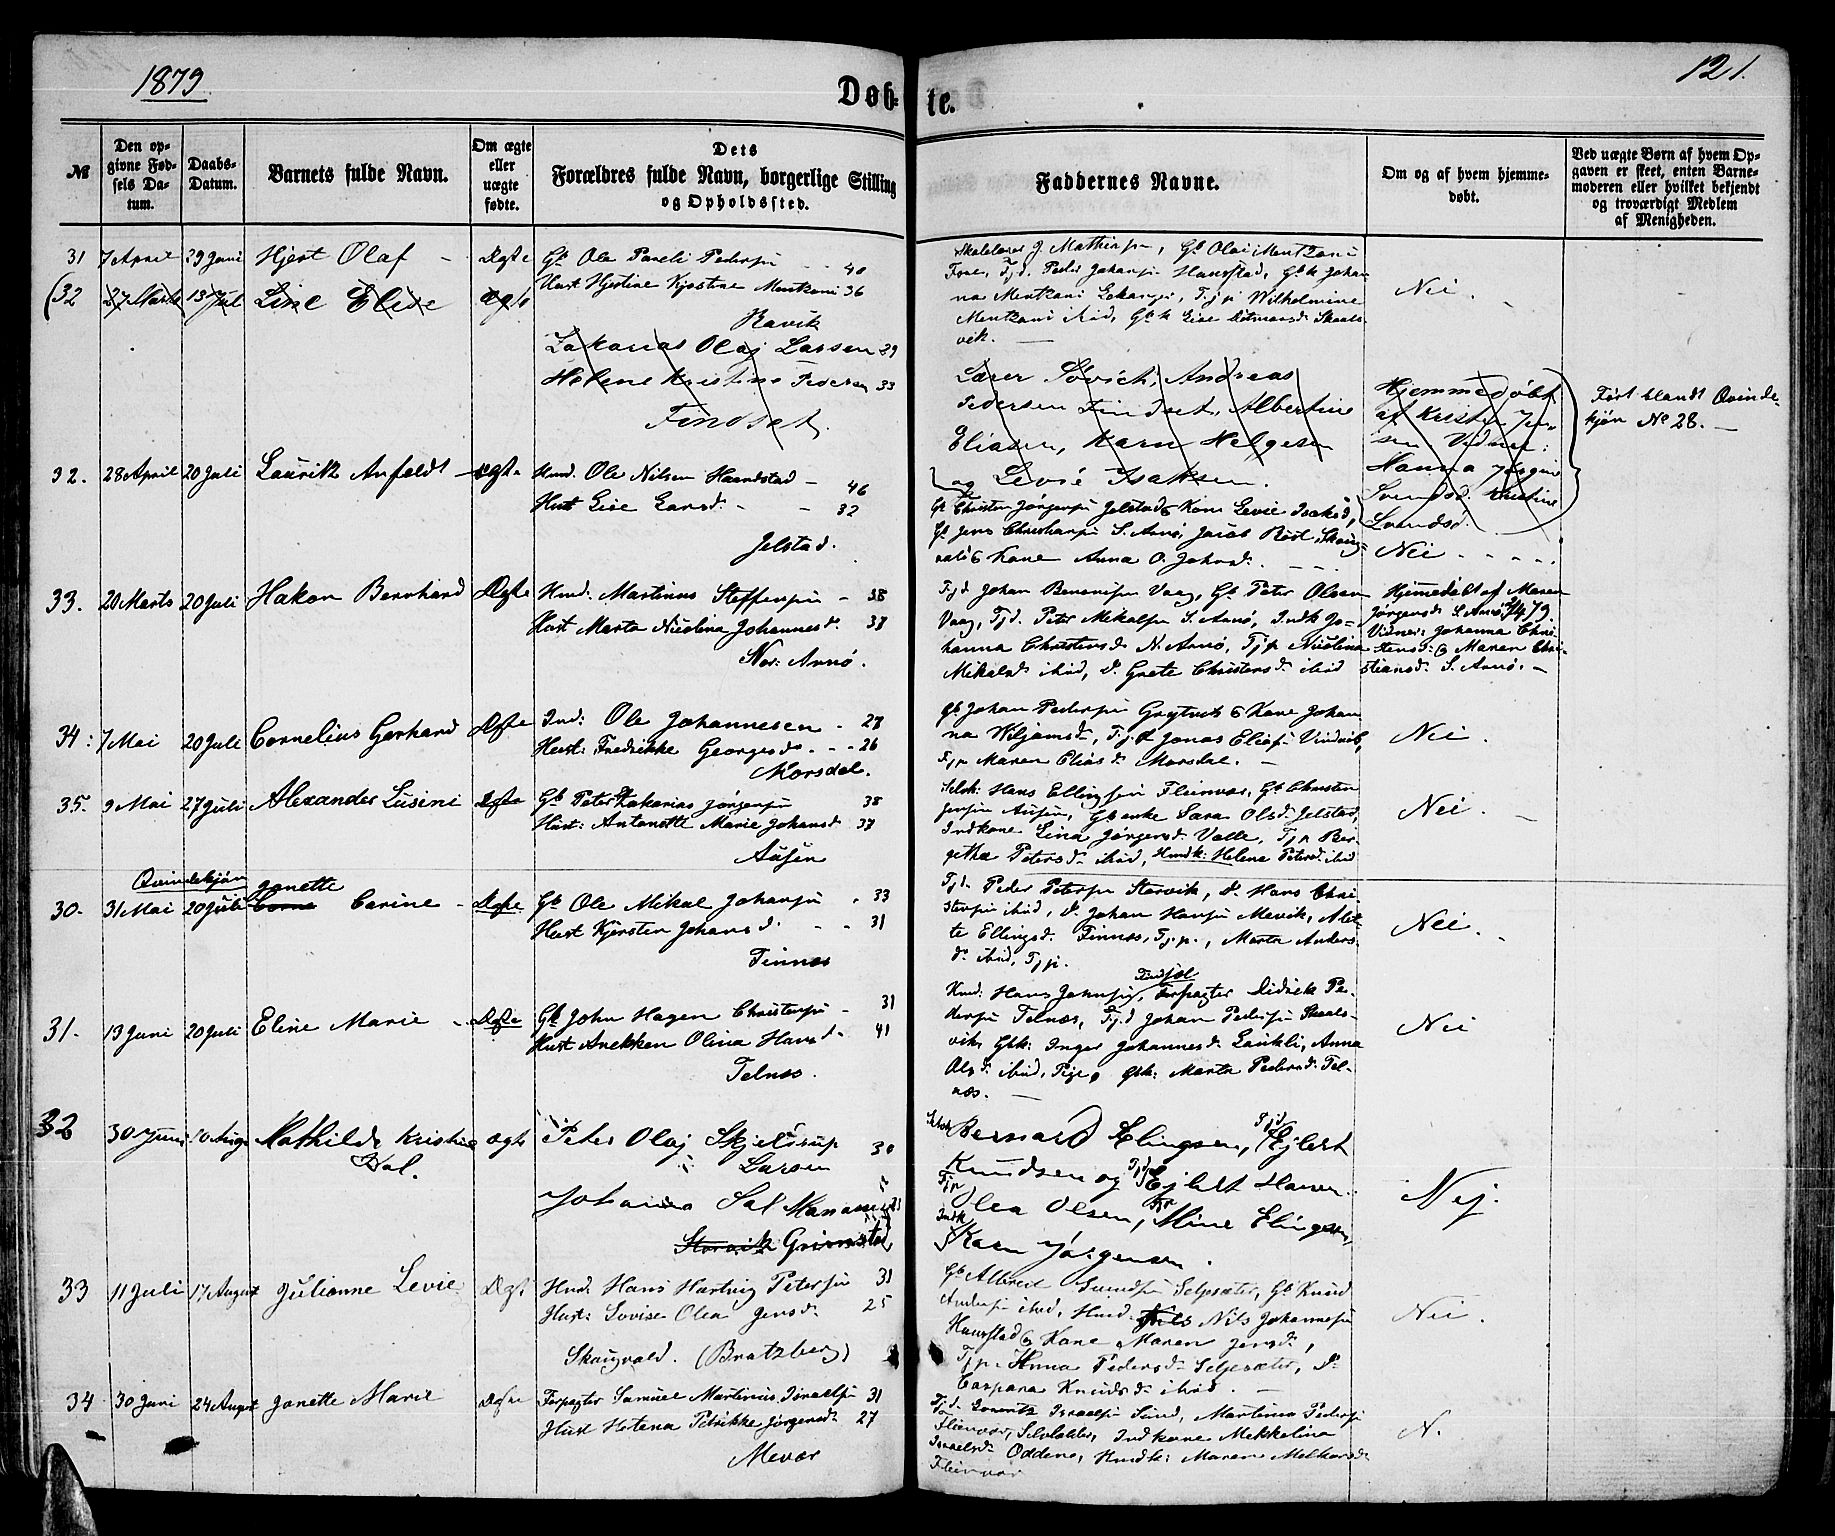 1879
Døb-
te.
121.
№
Den op-
givne Fød-
sels Da-
tum.
Daabs-
Datum.
Barnets fulde Navn.
Om ægte
eller
uægte
fødte.
Dets
Forældres fulde Navn, borgerlige Stilling
og Opholdssted.
Faddernes Navne.
Om og af hvem hjemme-
døbt.
Ved uægte Børn af hvem Op-
gaven er skeet, enten Barne-
moderen eller hvilket bekjendt
og troværdigt Medlem
af Menigheden.
31 7 April 29 Juni Hjert Olaf - Ægte
Gb Ole Pareli Pedersen 40
Hust Hjertine Kjerstine Mentzoni 36
Ravik
Skolelærer J. Mathisen, Gb Olai Mentzoni
Fore, Tjd. Peder Johansen Haugstad, Gbk Johan
na Mentzoni Tjp Wilhelmine
Mentzoni ibid, Gbk Lise Ditmarsd. Skaals-
vik.
Nei.
(32 27 Marts 13 Jul Line Elise Ægte
Zakarias Olaj Larsen 29
Helene Kristine Pedersen 33
Tindset.
Lærer Søvich, Andreas
Pedersen Findset, Albertine
Eliasen, Karn Helgesen
og Levié Isaksen.
Hjemmedøbt
af Kristen Jen-
sen Vidner:
Hanna Jørgine
Svendsd. Kristine
Svendsd.
Ført blandt Qvinde-
kjøn No 28. -
32. 28 April 20 Juli Laurits Anfeldt - Ægte
Hmd. Ole Nilsen Haandstad - 46
Hust Lise Larsd. - - 32
Jelstad.
Gb Christen Jørgensen Jelstad & Kone Levie Isaksd,
Gb Jens Christiansen S. Arnø, Jacob Røst, Skaug-
vold & Kone Anna O. Johnsd.
Nei
33. 20 Marts 20 Juli Hakon Bernhard Ægte
Hmd. Martinus Steffensen - 38
Hust Marta Nicolina Johannesd. 37
Nor: Arnø.
Tjd Johan Vaag, Gb Peter Olsen
Vaag, Tjd. Peter Mikalsen S. Arnø, Indk Jo-
hanna Christensd. N. Arnø, Tjp Nicolina
Mikalsd. ibid, d. Grete Christensd. ibid
Hjemmedøbt af Maren
Jørgensd. S. Arnø 2/4 79.
Vidner: Johanna Chri-
stensd: & Maren Chri-
stiansd. S. Arnø. -
34. 7 Mai 20 Juli Cornelius Gerhard Ægte
Ind: Ole Johannesen - 27
Hust: Fredrikke Georgesd. - - 26
Morsdal.
Gb Johan Pedersen & Kone Johan
na Wiljamsd, Tjd Jonas Eliasen Vindvik,
Tjp Maren Eliasd. Morsdal. -
Nei.
35. 9 Mai 27 Juli Alexander Lusini Ægte
Gb Peter Zakarias Jørgensen 38
Hust: Antonette Marie Johansd 37
Aasen
Selvh: Hans Ellingsen Fleinvær, Gb Christen
Jensen Aasen, Gbenke Sara Olsd. Jelstad,
Indkone Lina Jørgensd. Valle, Tjp Ber-
githa Petersd. ibid, Hmdk: Helena Petersd. ibid
Nei.
Qvindekjøn
30. 31 Mai 20 Juli Janette Carine - Ægte
Gb Ole Mikal Johansen 33
Hust Kjersten Johansd. - - 31
Finnæs
Tjd. Peder Petersen Storvik, d. Hans Chri-
stensen ibid, d. Johan Hansen Mevik,
te Ellingsd. Finnæs, Tjp., Marta Anders-
d. ibid, Tjp.
Nei.
31. 13 Juni 20 Juli Eline Marie - Ægte
Gb John Hagen Christensen - 31
Hust Anekken Olina Hansd. 41
Telnæs.
Hmd: Hans Johnsen, Forpagter Didrik Pe-
dersen Telnæs, Tjd Johan Pedersen Skaals-
vik, Gbk: Inger Johannesd. Laukli, Anna
Olsd. ibid, Pige, Gbk: Marta Pedersd. Tel-
næs. -
Nei
32 30 Juni 10 Aug Mathilde Kristine Ægte
Dal.
Peter Olaj Skjelstrup 30
Larsen
Storvik Grimstad
Bernard Elingsen, Tjd Ejlert
Knudsen og Tjd Ejlert Hansen
Tjp Olea Olsen, Tjp Mine Elingsen,
Indk Karn Jørgensen.
Nej.
33 11 Juli 17 August Julianne Levie Ægt
Hmd. Hans Hartvig Petersen 31
Hust: Lovise Olea Jensd. 25
Skaugvold. (Bratzberg)
Gb Albregt Selsæter, Gb Knud
Andersen ibid, Hmd. Nils Johannesen
Haugstad & Kone Maren Jensd.,
Tjp. Anna Pedersd. Selsæter, d.
Caspara Knudsd. ibid. -
Nei.
34 30 Juni 24 August Janette Marie Ægte
Forpagter Samuel Martinus Israelsen 31
Hust Helena Petrikke Jørgensd. 27
Mevær
Tjd. Lorents Israelsen Sund, Martinus Pedersen
Fleinvær, Selvholder, Indkone Mekkelina
Israelsd. Oddene, Hmdk: Maren Melkersd.
Fleinvær
N.